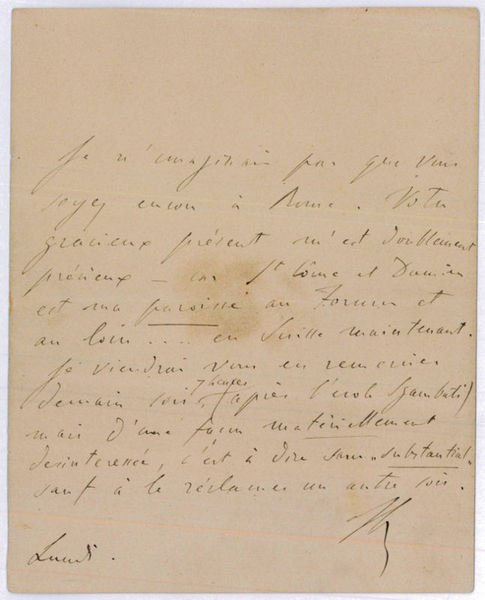 Je n'imaginais pas que vous
soyez encore à Rome. Votre
gracieux présent m'est doublement
précieux – car St Côme et Damien
est ma paroisse au Forum et
au loin .... en Suisse maintenant.
Je viendrai vous en remercier
demain soir, 7 heures (après l'école Sgambati)
mais d'une façon matériellement
desinteressée, c'est à dire sans "substantial"
sauf à le réclamer un autre soir.
Lundi.